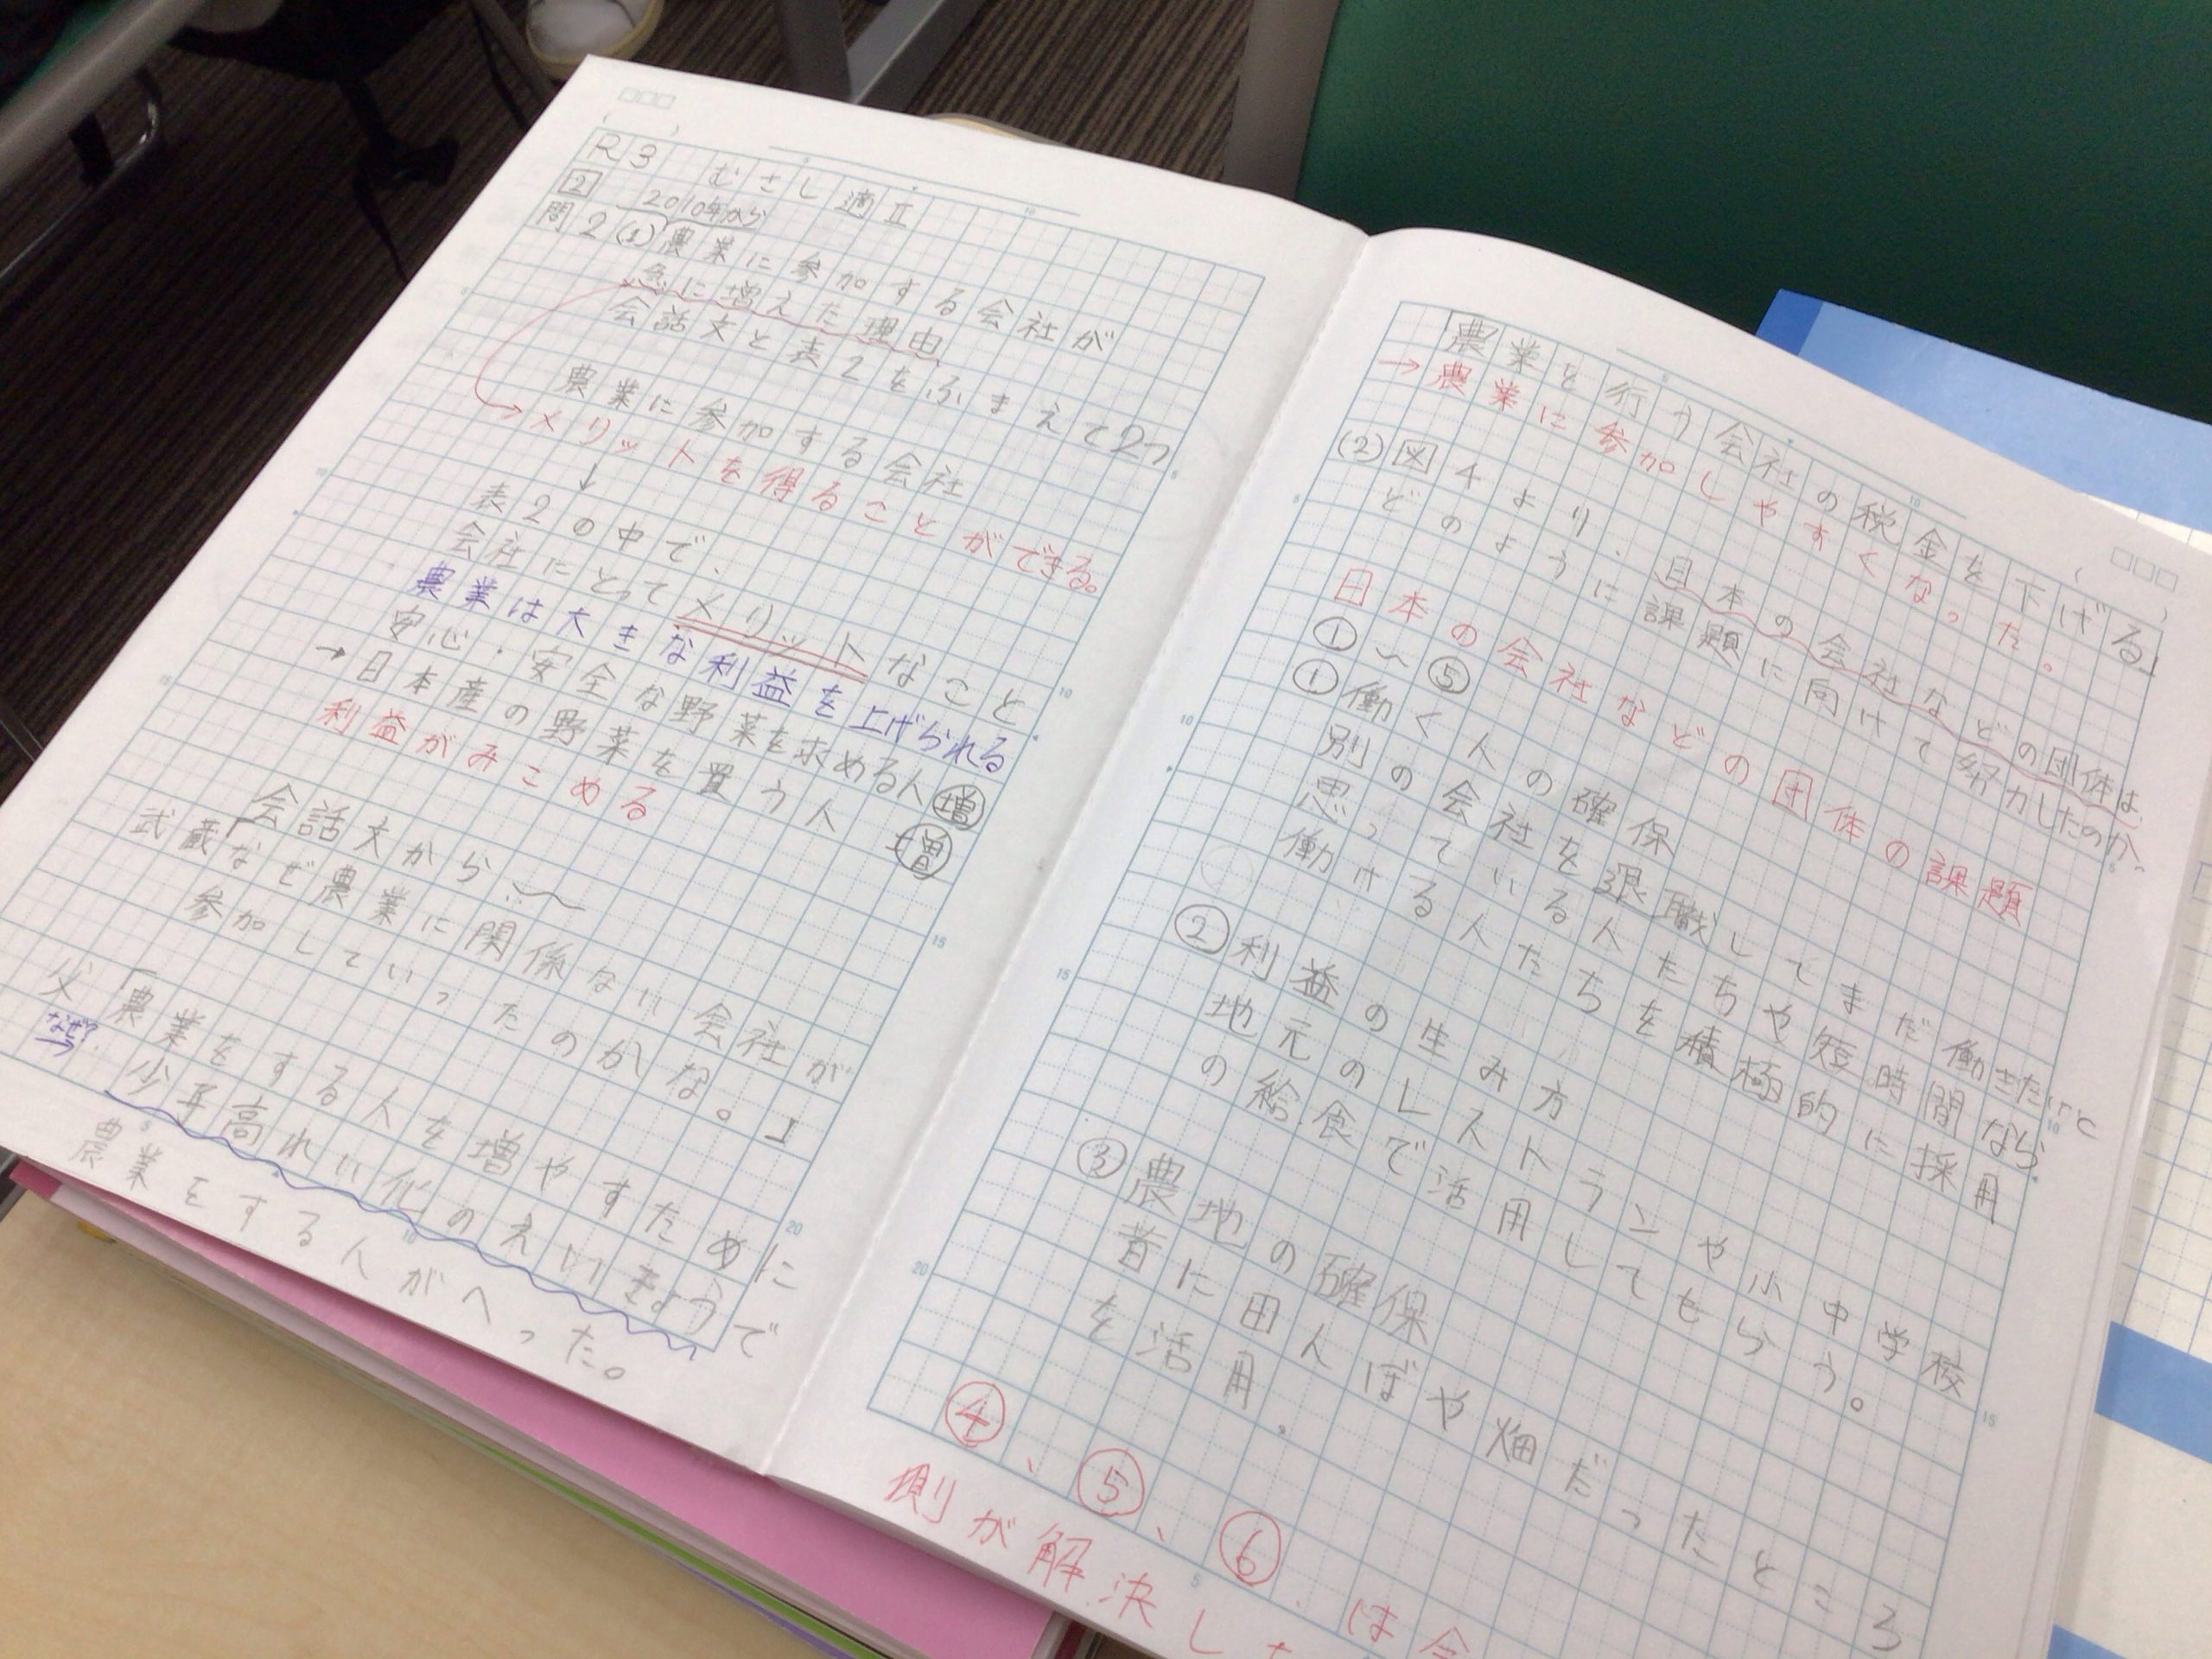 R3 むさし適Ⅱ
2
2010年から
問2(1)農業に参加する会社が
急に増えた理由
会話文と表2をふまえて2つ
農業に参加する会社
→メリットを得ることができる。
↓
表2の中で、
会社にとってメリットなこと
農業は大きな利益を上げられる
安心・安全な野菜を求める人増
→日本産の野菜を買う人 増
利益がみこめる
会話文から
武蔵「なぜ農業に関係ない会社が
参加していったのかな。」
父「農業をする人を増やすために
なぜ?
少子高れい化のえいきょうで
農業をする人がへった。
「農業を行う会社の税金を下げる」
→農業に参加しやすくなった。
(2)図4より、日本の会社などの団体は
どのように課題に向けて努力したのか。
日本の会社などの団体の課題
①〜⑤
①働く人の確保
別の会社を退職してまだ働きたいと
思っている人たちや短時間なら
働ける人たちを積極的に採用
②利益の生み方
地元のレストランや小中学校
の給食で活用してもらう。
③農地の確保
昔に田んぼや畑だったところ
を活用。
④、⑤、⑥、は会
側が解決した